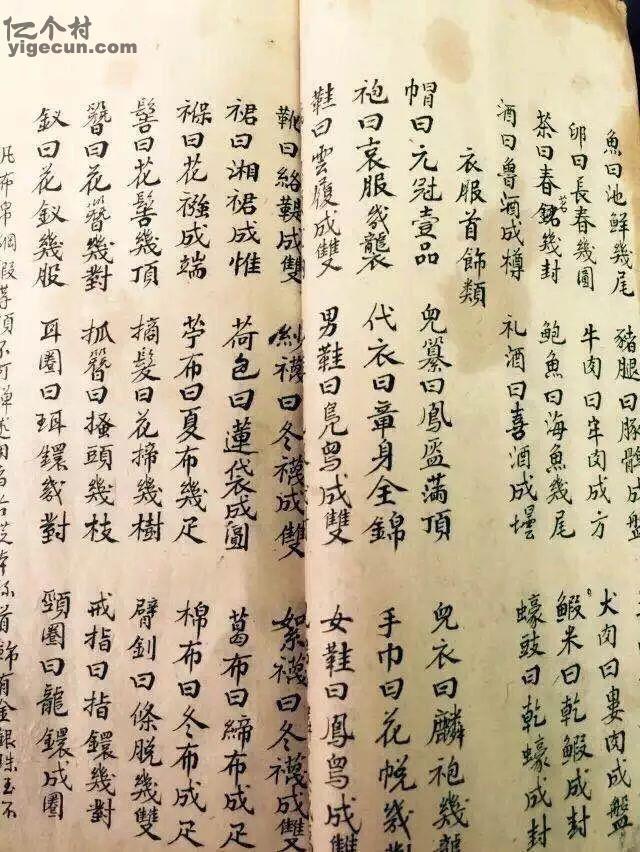 亿个村
yigecun.com
魚曰池鮮幾尾 豬腿曰豚髈成盤 犬肉曰婁肉成盤
卵曰長春幾圓 牛肉曰牢肉成方 蝦米曰乾蝦成封
茶曰春銘茗幾封 鮑魚曰海魚幾尾 蠔豉曰乾蠔成封
酒曰魯酒成樽 礼酒曰喜酒成壜
衣服首飾類
帽曰元冠壹品 兒纂曰鳳盔滿頂 兒衣曰麟袍幾襲
袍曰袞服幾襲 代衣曰章身全錦 手巾曰花帨幾對
鞋曰雲履成雙 男鞋曰鳧舄成雙 女鞋曰鳳舄成雙
靴曰絡鞮成雙 紗襪曰冬襪成雙 絮襪曰冬襪成雙
裙曰湘裙成帷 荷包曰蓮袋成圓 葛布曰絺布成疋
褓曰花襁成端 苧布曰夏布幾疋 棉布曰冬布成疋
髻曰花髻幾頂 摘髮曰花掃幾樹 臂釧曰條脫幾雙
簪曰花簪幾對 抓簪曰搔頭幾枝 戒指曰指鐶幾對
釵曰花釵幾股 耳圈曰珥鐶幾對 頸圈曰龍鐶成圈
凡布帛綢緞等項不可 首飾有金銀珠玉不